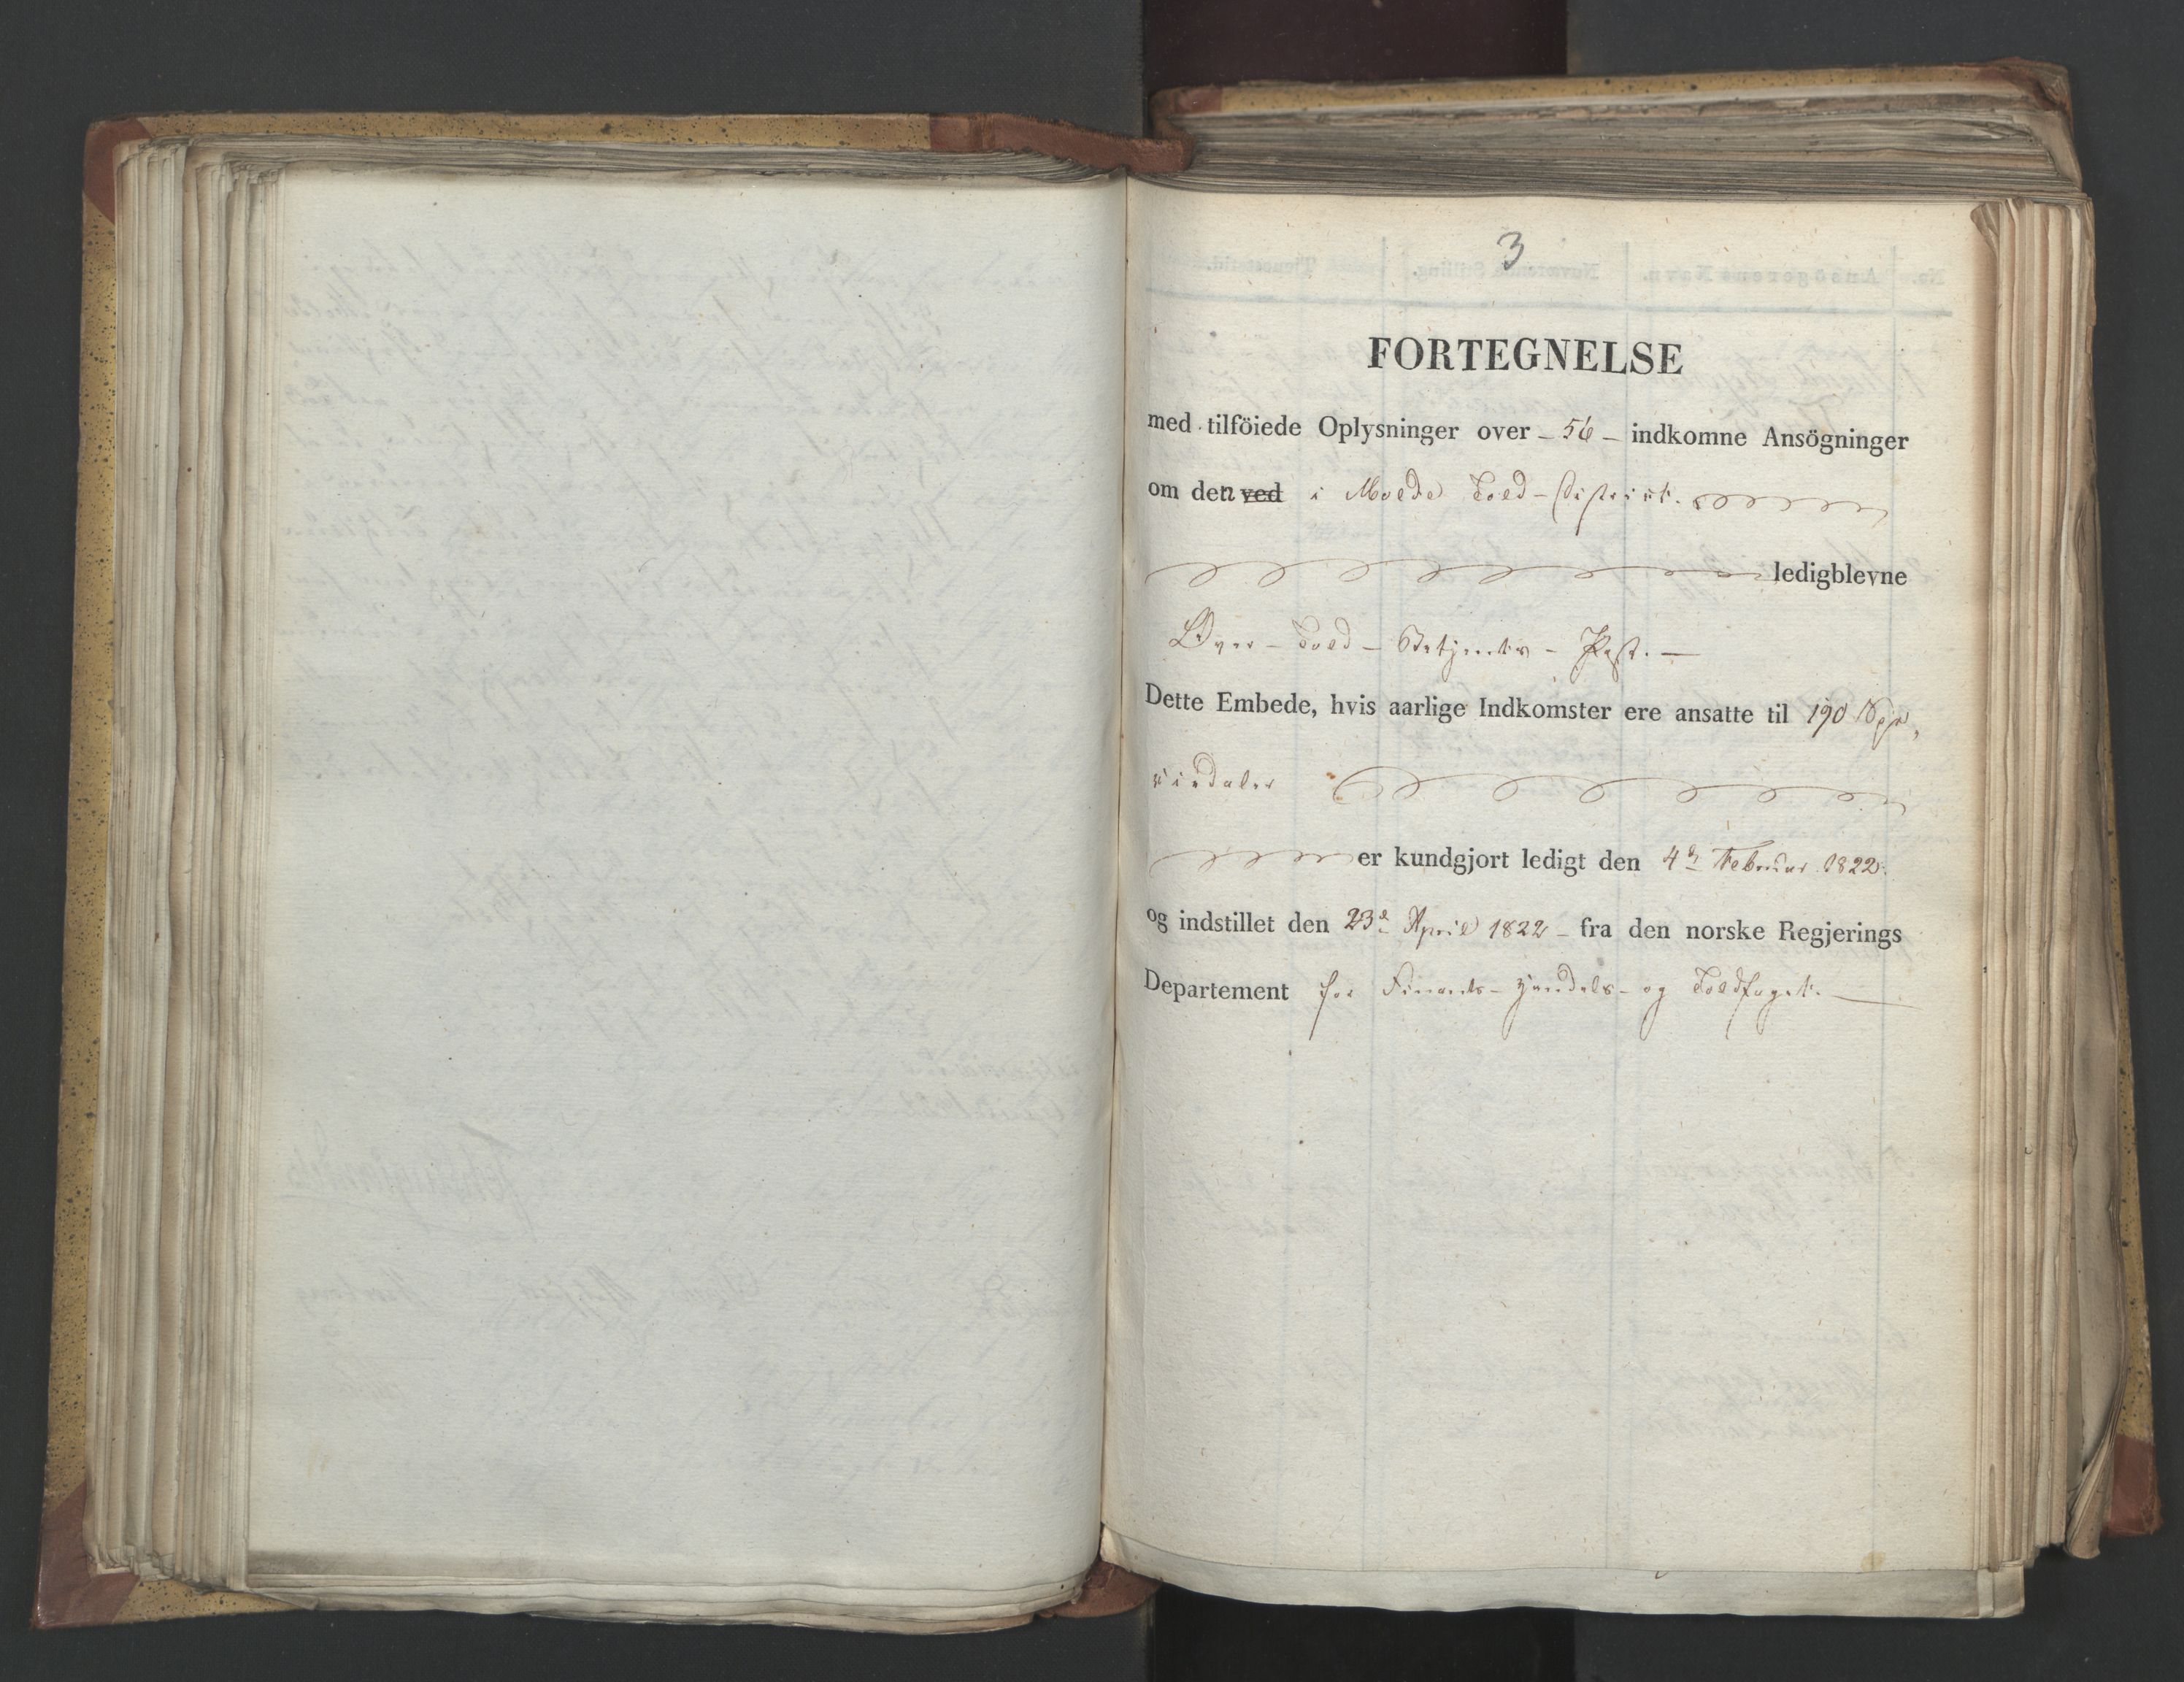 3
FORTEGNELSE
med tilföiede Oplysninger over - 56 - indkomne Ansögninger
om den ved i Molde Told-District.
ledigblevne
Over-Told-Betjents-Post. —
Dette Embede, hvis aarlige Indkomster ere ansatte til 190 Spe-
ciedaler
er kundgjort ledigt den 4de Februar 1822.
og indstillet den 23de April 1822 - fra den norske Regjerings
Departement for Finants-Handels- og Toldfaget. —